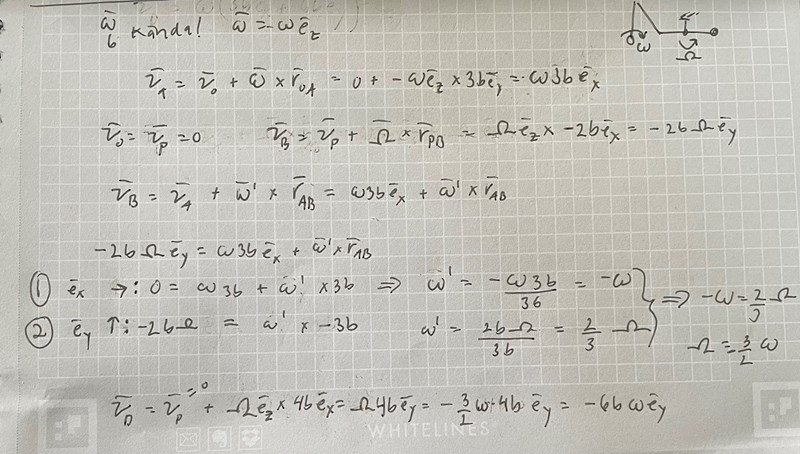 ω̄
b kända! ω̄ = -ω ē_z
ω
Ω
v̄_A = v̄_O + ω̄ × r̄_OA = 0 + -ω ē_z × 3b ē_y = ω3b ē_x
v̄_O = v̄_P = 0 v̄_B = v̄_P + Ω̄ × r̄_PB = Ω ē_z × -2b ē_x = -2b Ω ē_y
v̄_B = v̄_A + ω̄' × r̄_AB = ω3b ē_x + ω̄' × r̄_AB
-2b Ω ē_y = ω3b ē_x + ω̄' × r̄_AB
① ē_x →: 0 = ω3b + ω̄' × 3b ⇒ ω' = -ω3b/3b = -ω
② ē_y ↑: -2bΩ = ω' × -3b ω' = 2bΩ/3b = 2/3 Ω } ⇒ -ω = 2/3 Ω
Ω = -3/2 ω
v̄_D = v̄_P =0 + Ω ē_z × 4b ē_x = Ω4b ē_y = -3/2 ω 4b ē_y = -6b ω ē_y
WHITELINES